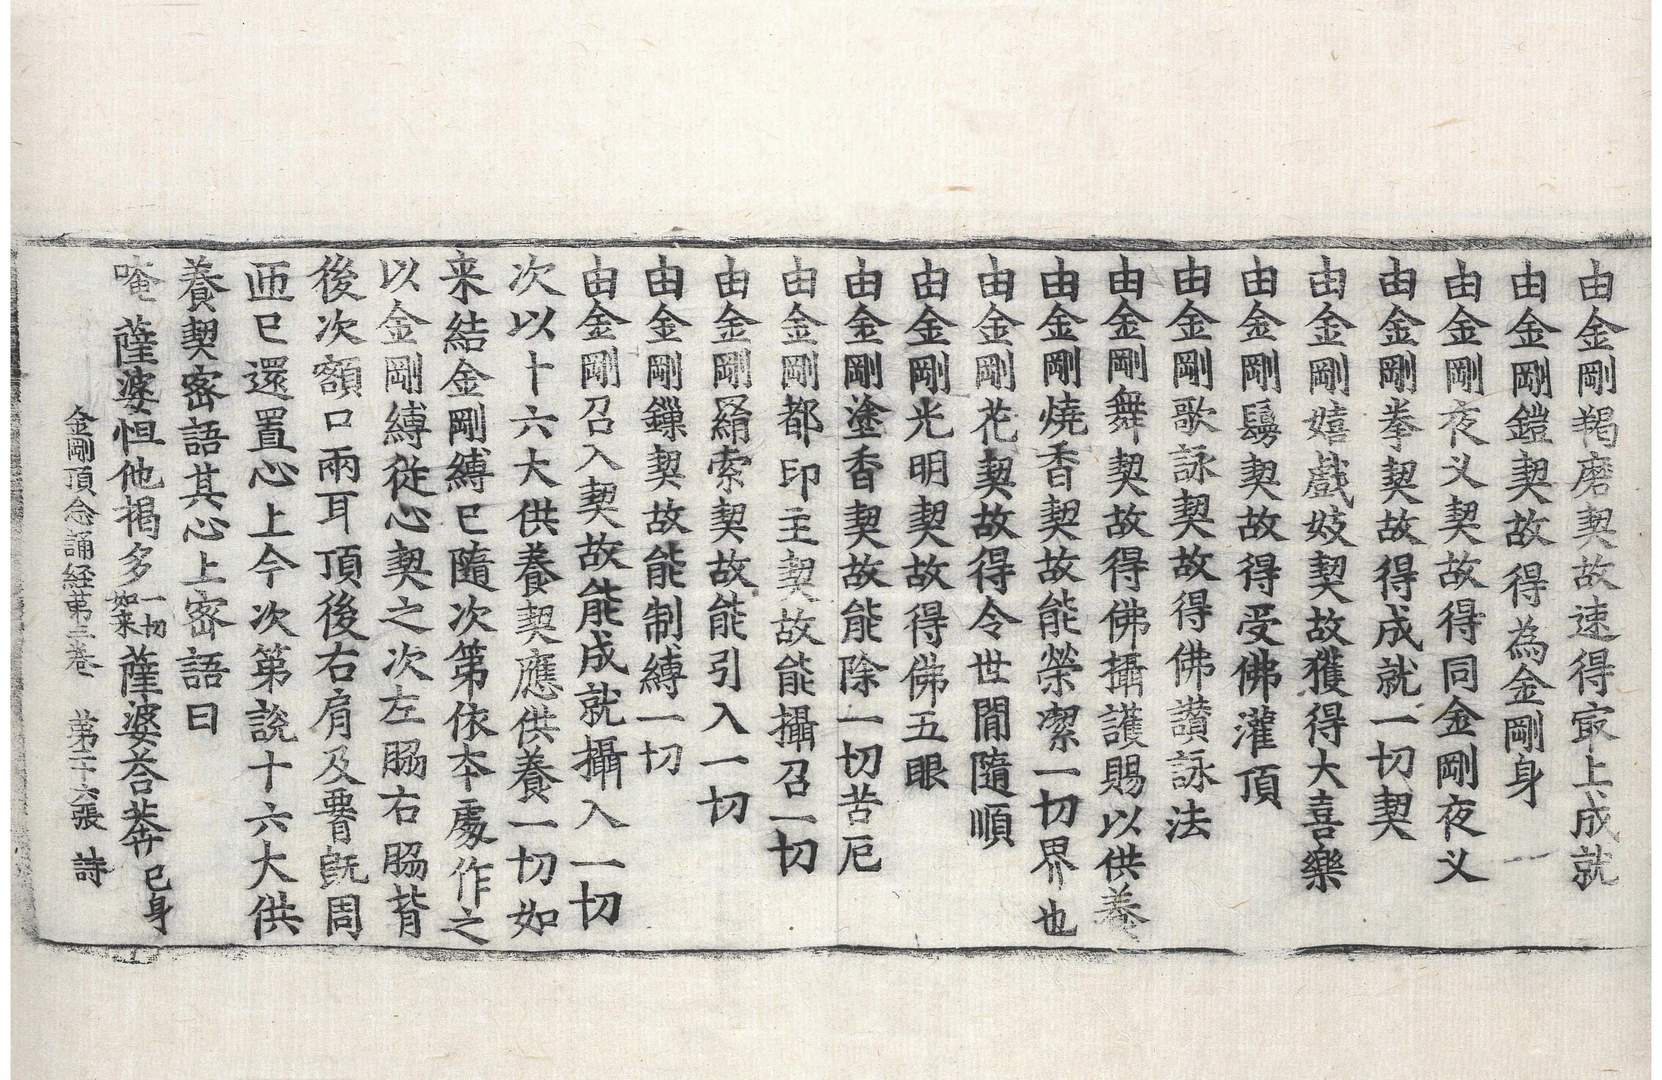 由金剛羯磨契故速得㝡上成就
由金剛鎧契故得為金剛身
由金剛夜义契故得同金剛夜义
由金剛拳契故得成就一切契
由金剛嬉戲妓契故獲得大喜樂
由金剛鬘契故得受佛灌頂
由金剛歌詠契故得佛讚詠法
由金剛舞契故得佛攝護賜以供養
由金剛燒香契故能榮潔一切界也
由金剛花契故得令世間隨順
由金剛光明契故得佛五眼
由金剛塗香契故能除一切苦厄
由金剛都印主契故能攝召一切
由金剛羂索契故能引入一切
由金剛鏁契故能制縛一切
由金剛召入契故能成就攝入一切
次以十六大供養契應供養一切如
来結金剛縛已隨次第依夲處作之
以金剛縛從心契之次左脇右脇背
後次額口兩耳頂後右肩及䯒既周
匝已還置心上今次第說十六大供
養契密語其心上密語曰
唵薩婆怛他揭多一切如来薩婆荅茉奔己身
金剛頂念誦経苐三卷 苐十六張 詩